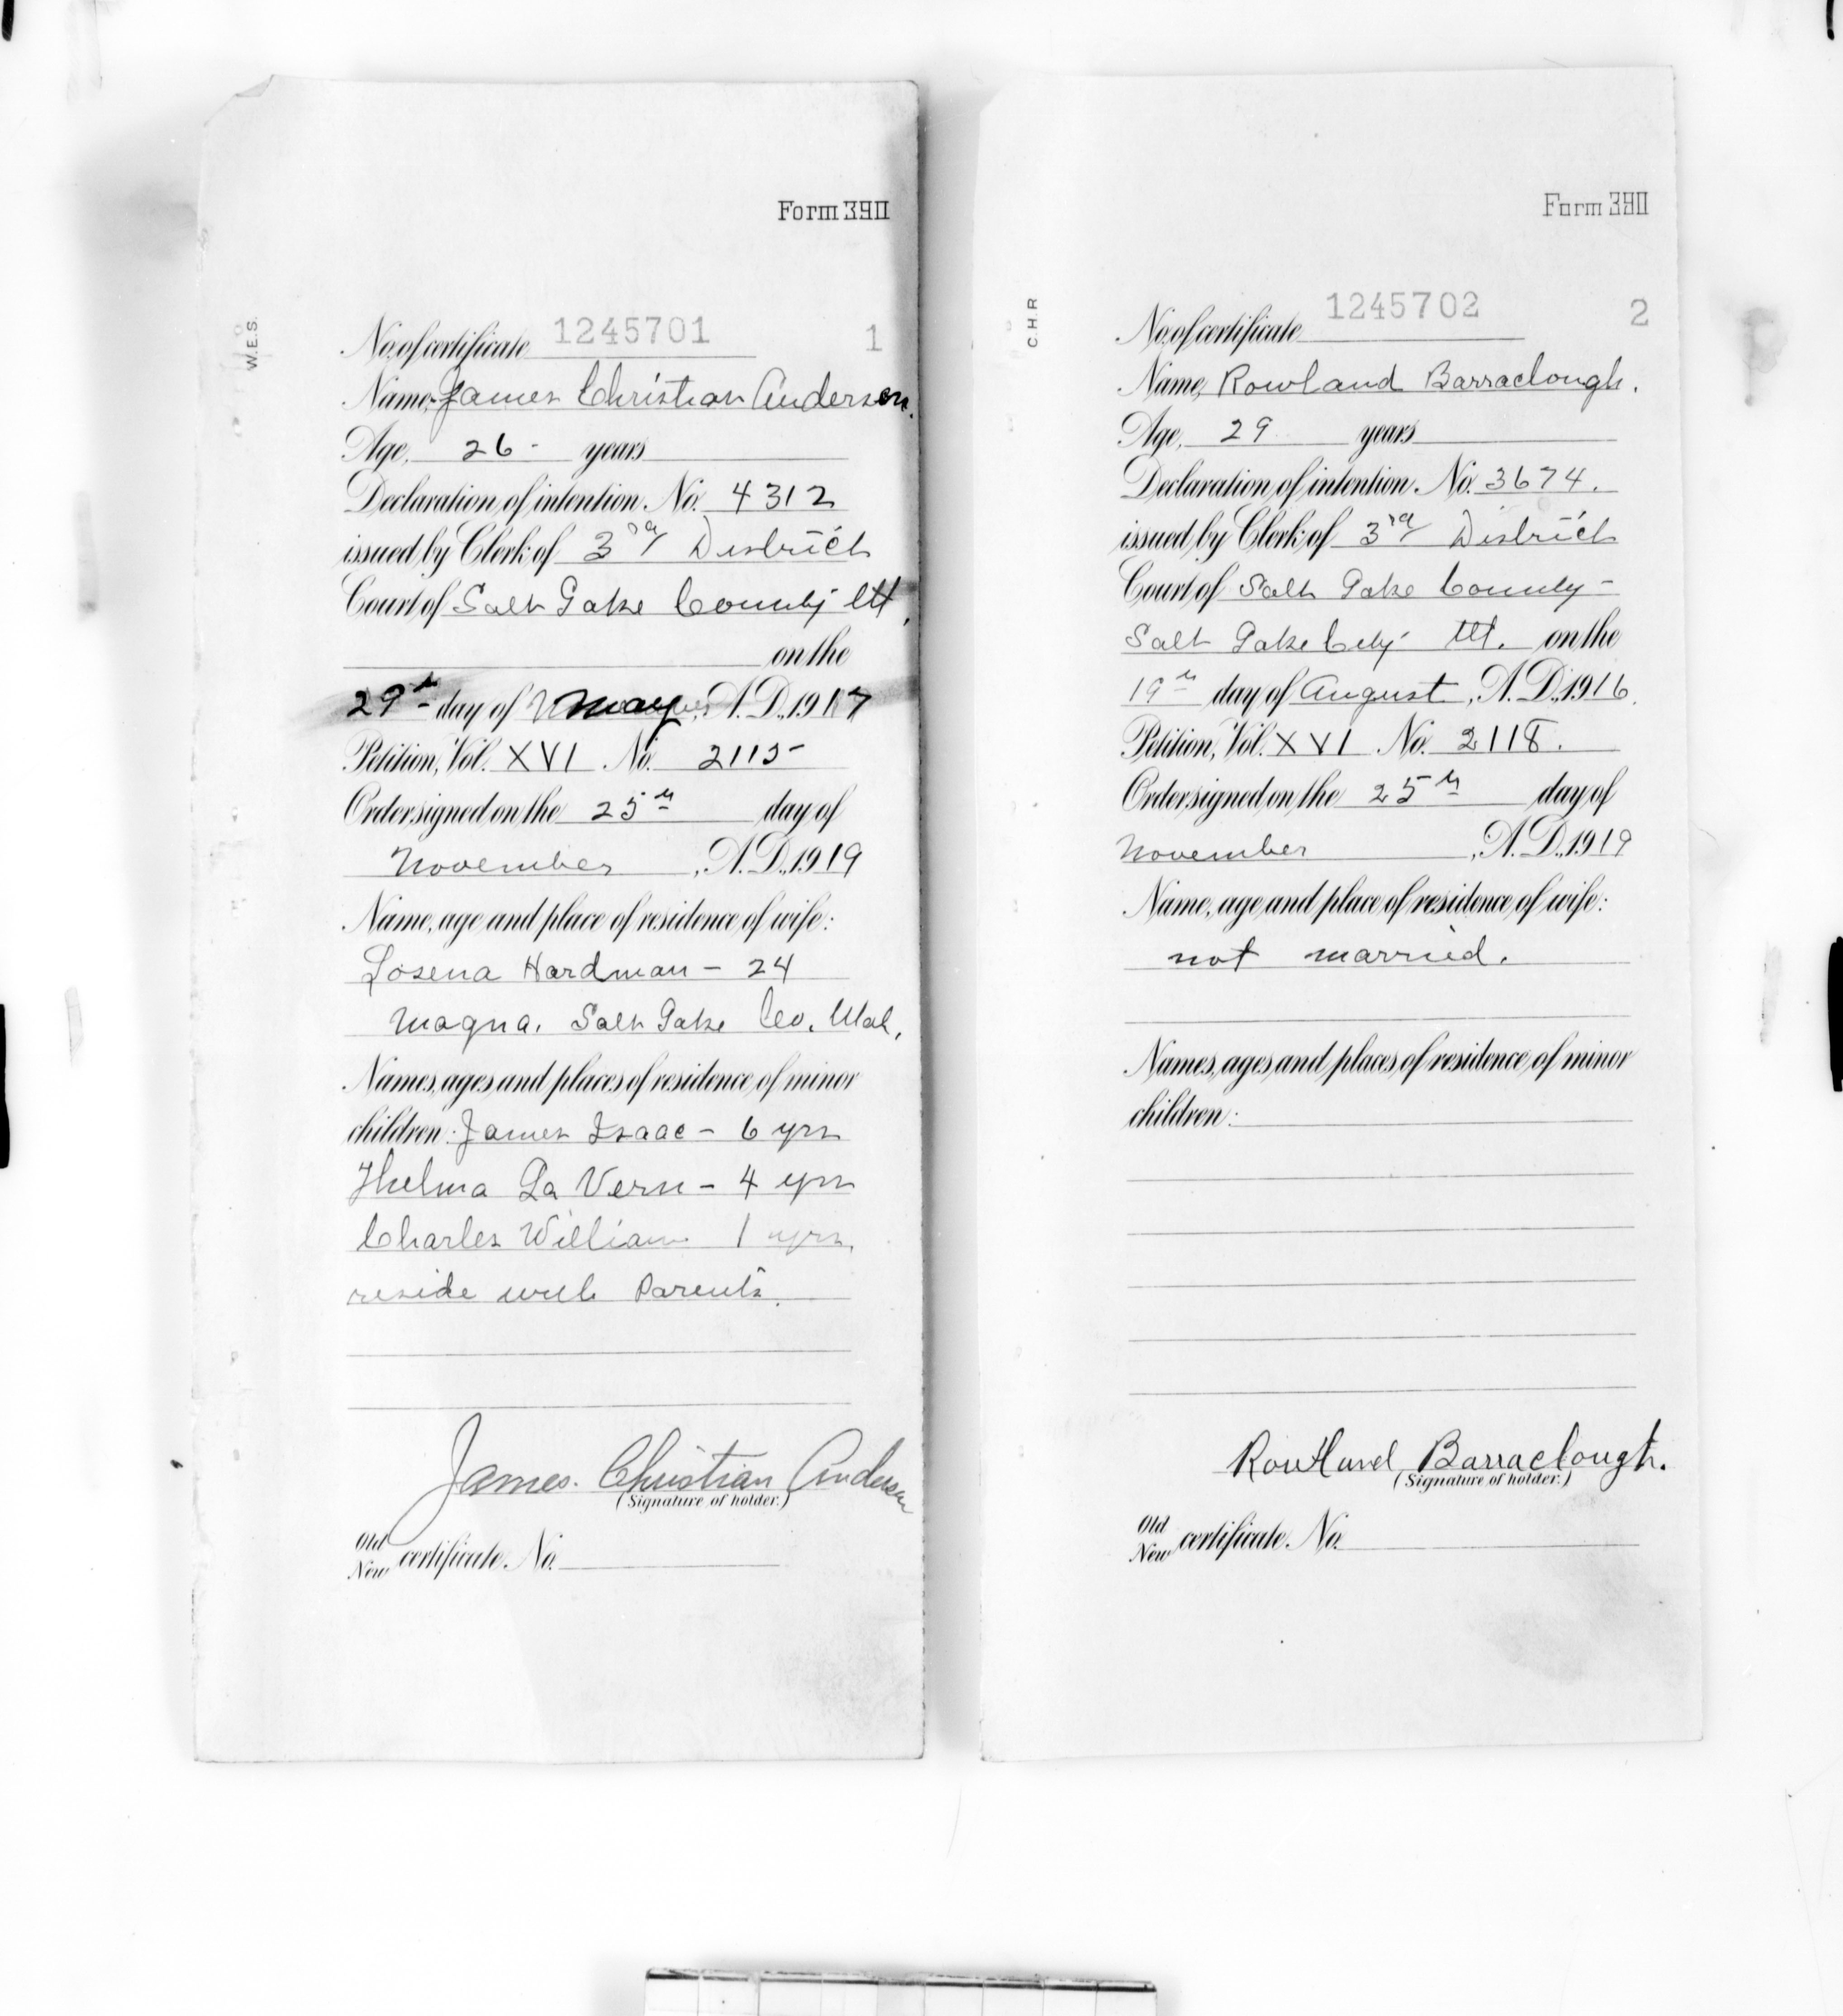 Form 390
W.E.S.
No. of certificate 1245701 1
Name, James Christian Andersen.
Age, 26 - years
Declaration of intention No. 4312
issued by Clerk of 3rd District
Court of Salt Lake County Ut,
on the
29th day of May, A. D., 1917
Petition, Vol. XVI No. 2115
Order signed on the 25th day of
November, A. D., 1919
Name, age and place of residence of wife:
Losena Hardman - 24
Magna. Salt Lake Co. Utah.
Names, ages and places of residence of minor
children: James Isaac - 6 yrs
Thelma La Vern - 4 yrs
Charles William 1 yrs.
reside with Parents.
James. Christian Andersen
(Signature of holder.)
Old
New certificate No.
Form 390
C.H.R
No. of certificate 1245702 2
Name, Rowland Barraclough.
Age, 29 years
Declaration of intention No. 3674.
issued by Clerk of 3rd District
Court of Salt Lake County -
Salt Lake City Ut. on the
19th day of August, A. D., 1916.
Petition, Vol. XVI No. 2118.
Order signed on the 25th day of
November, A. D., 1919
Name, age and place of residence of wife:
not married.
Names, ages and places of residence of minor
children:
Rowland Barraclough.
(Signature of holder.)
Old
New certificate No.